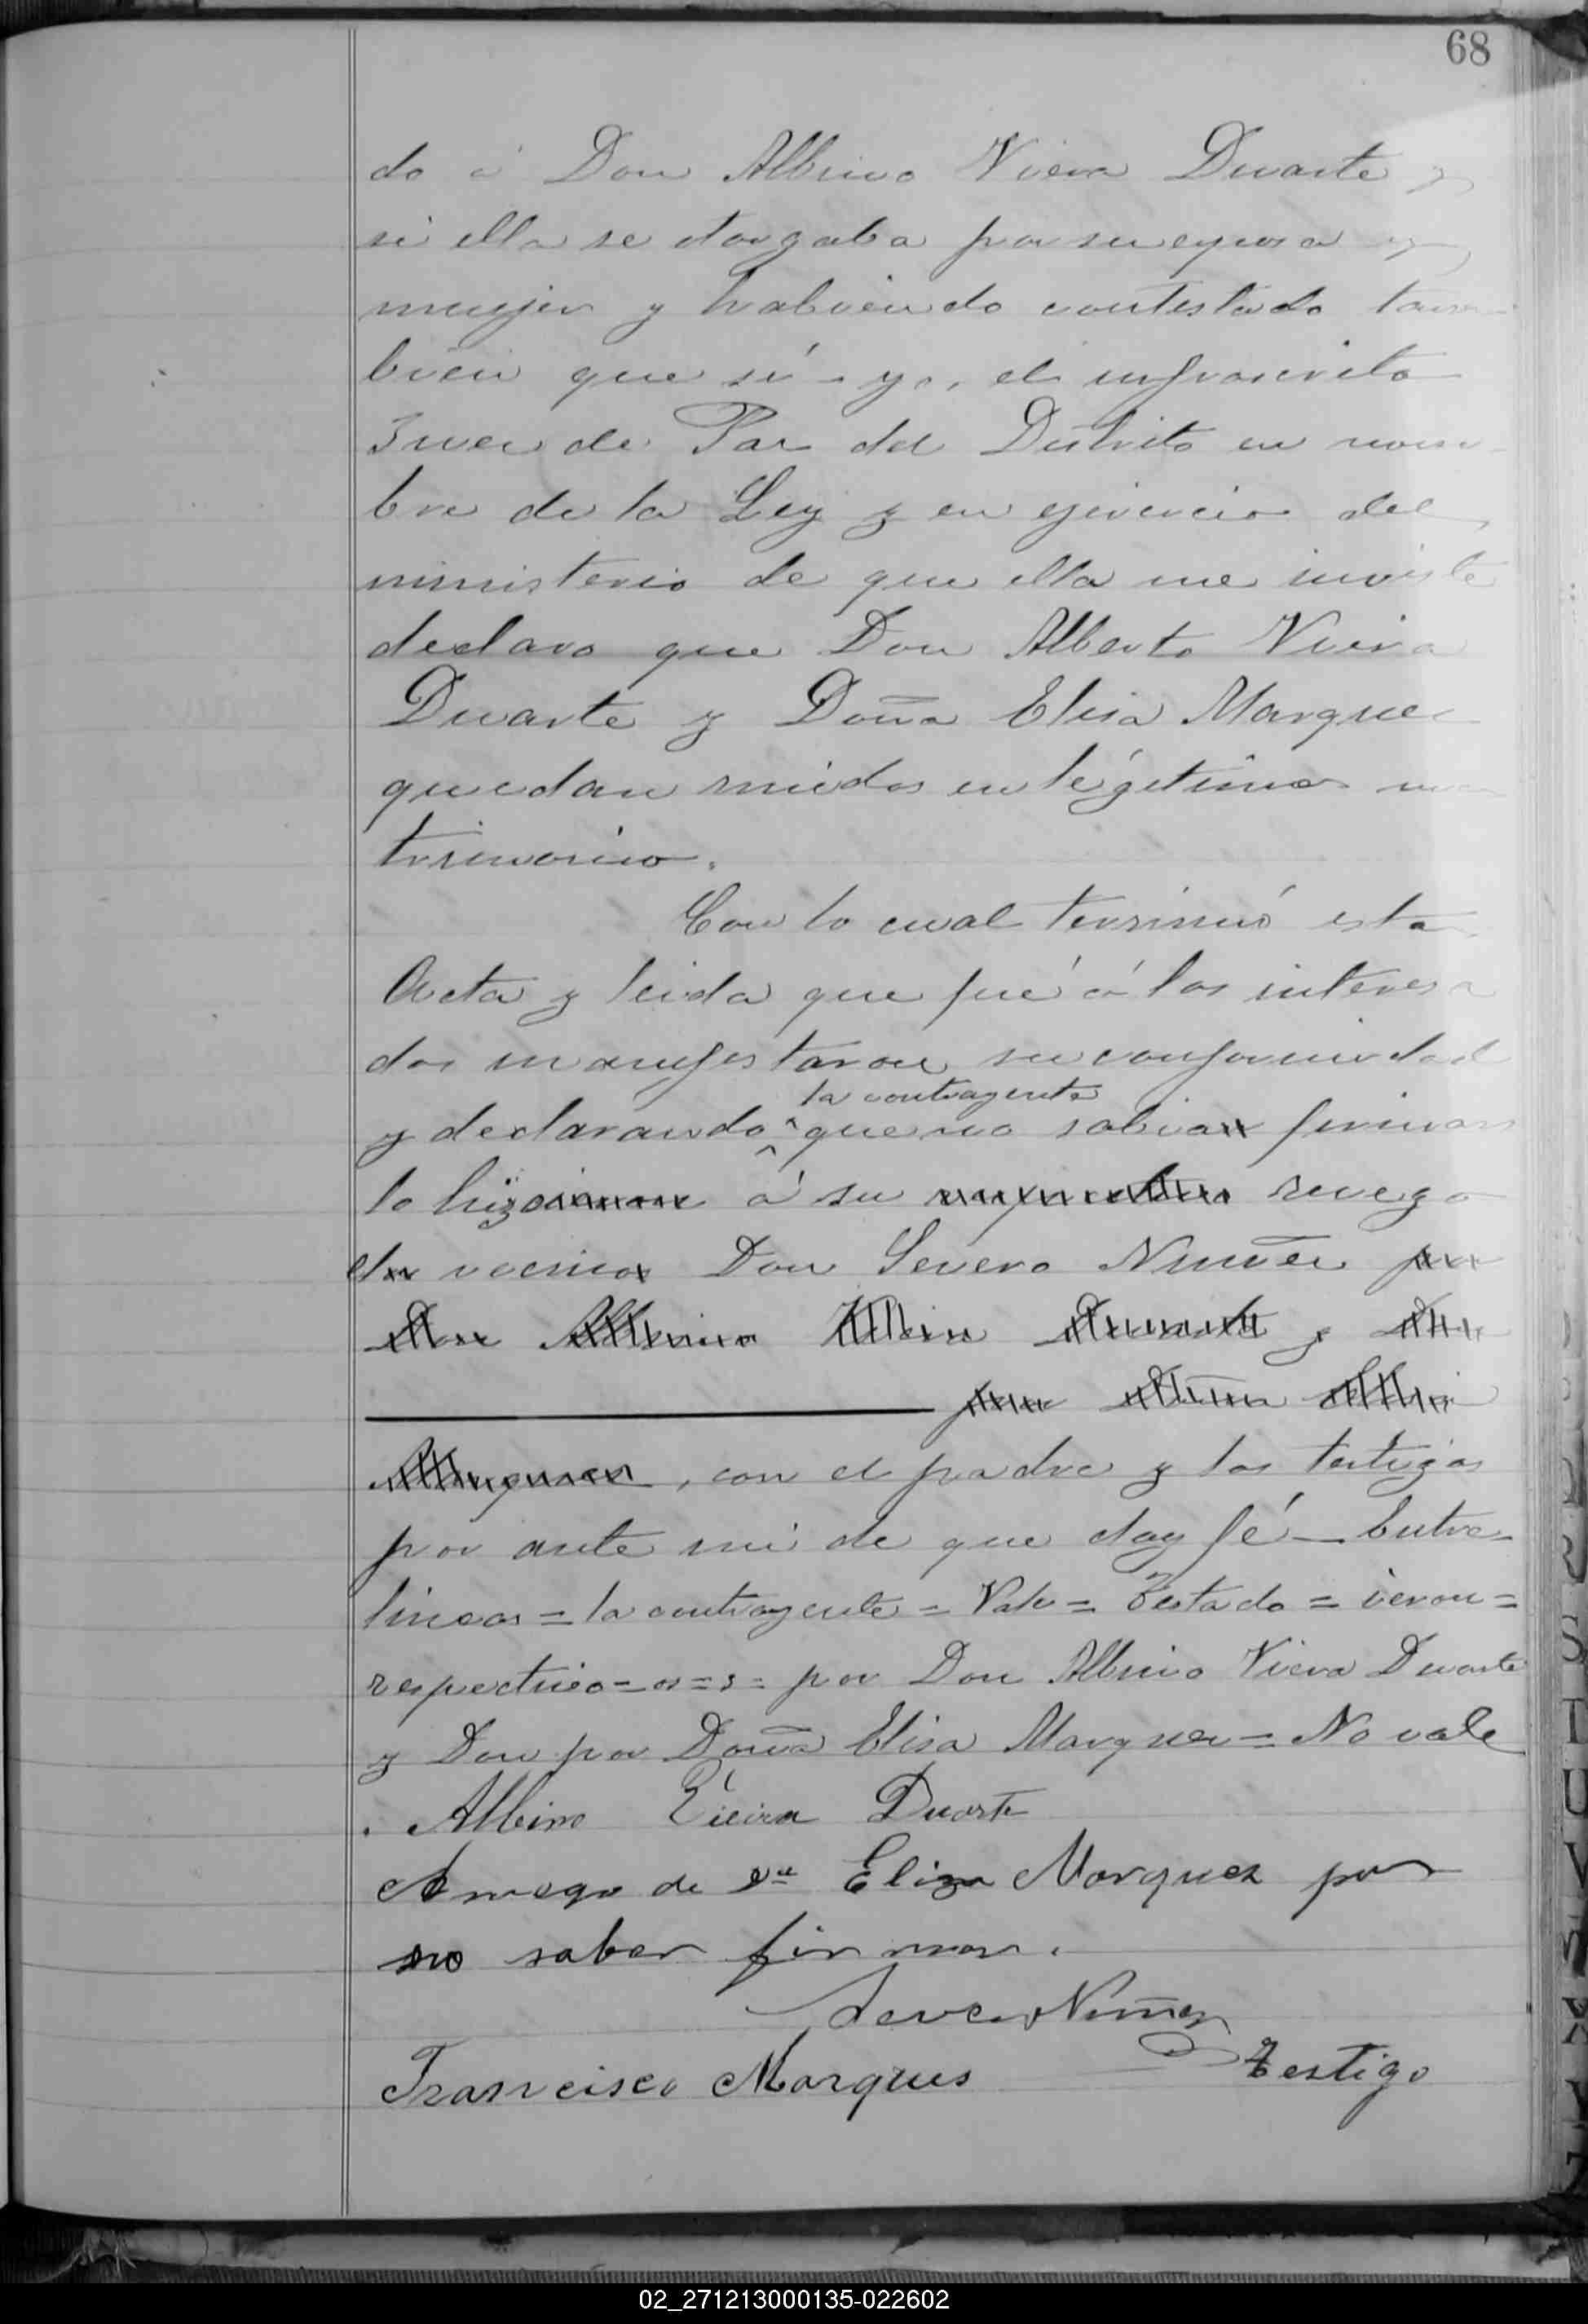 68
do á Don Albino Viera Duarte y
si ella se otorgaba por su esposa y
mujer y habiendo contestado tam
bien que sí - yo, el infrascrito
Juez de Paz del Distrito en nom
bre de la Ley y en ejercicio del
ministerio de que ella me inviste
declaro que Don Alberto Viera
Duarte y Doña Elisa Marquez
quedan unidos en legítimo ma
trimonio.
Con lo cual terminó esta
Acta y leida que fué á los interesa
dos manifestaron su conformidad
la contrayente
y declarando que no sabian firmar
lo hizieron á su respectivo ruego
los vecinos Don Severo Nuñez por
Don Albino Viera Duarte y Don
por Doña Elisa
Marquez, con el padre y los testigos
por ante mi de que doy fé - Entre
lineas = la contrayente = Vale = Testado = ieron =
respectivo = os = s = por Don Albino Viera Duarte
y Don por Doña Elisa Marquez = No vale
Albino Vieira Duarte
A ruego de Dª Eliza Marquez por
no saber firmar.
Severo Nuñez
Francisco Marques Testigo
02_271213000135-022602